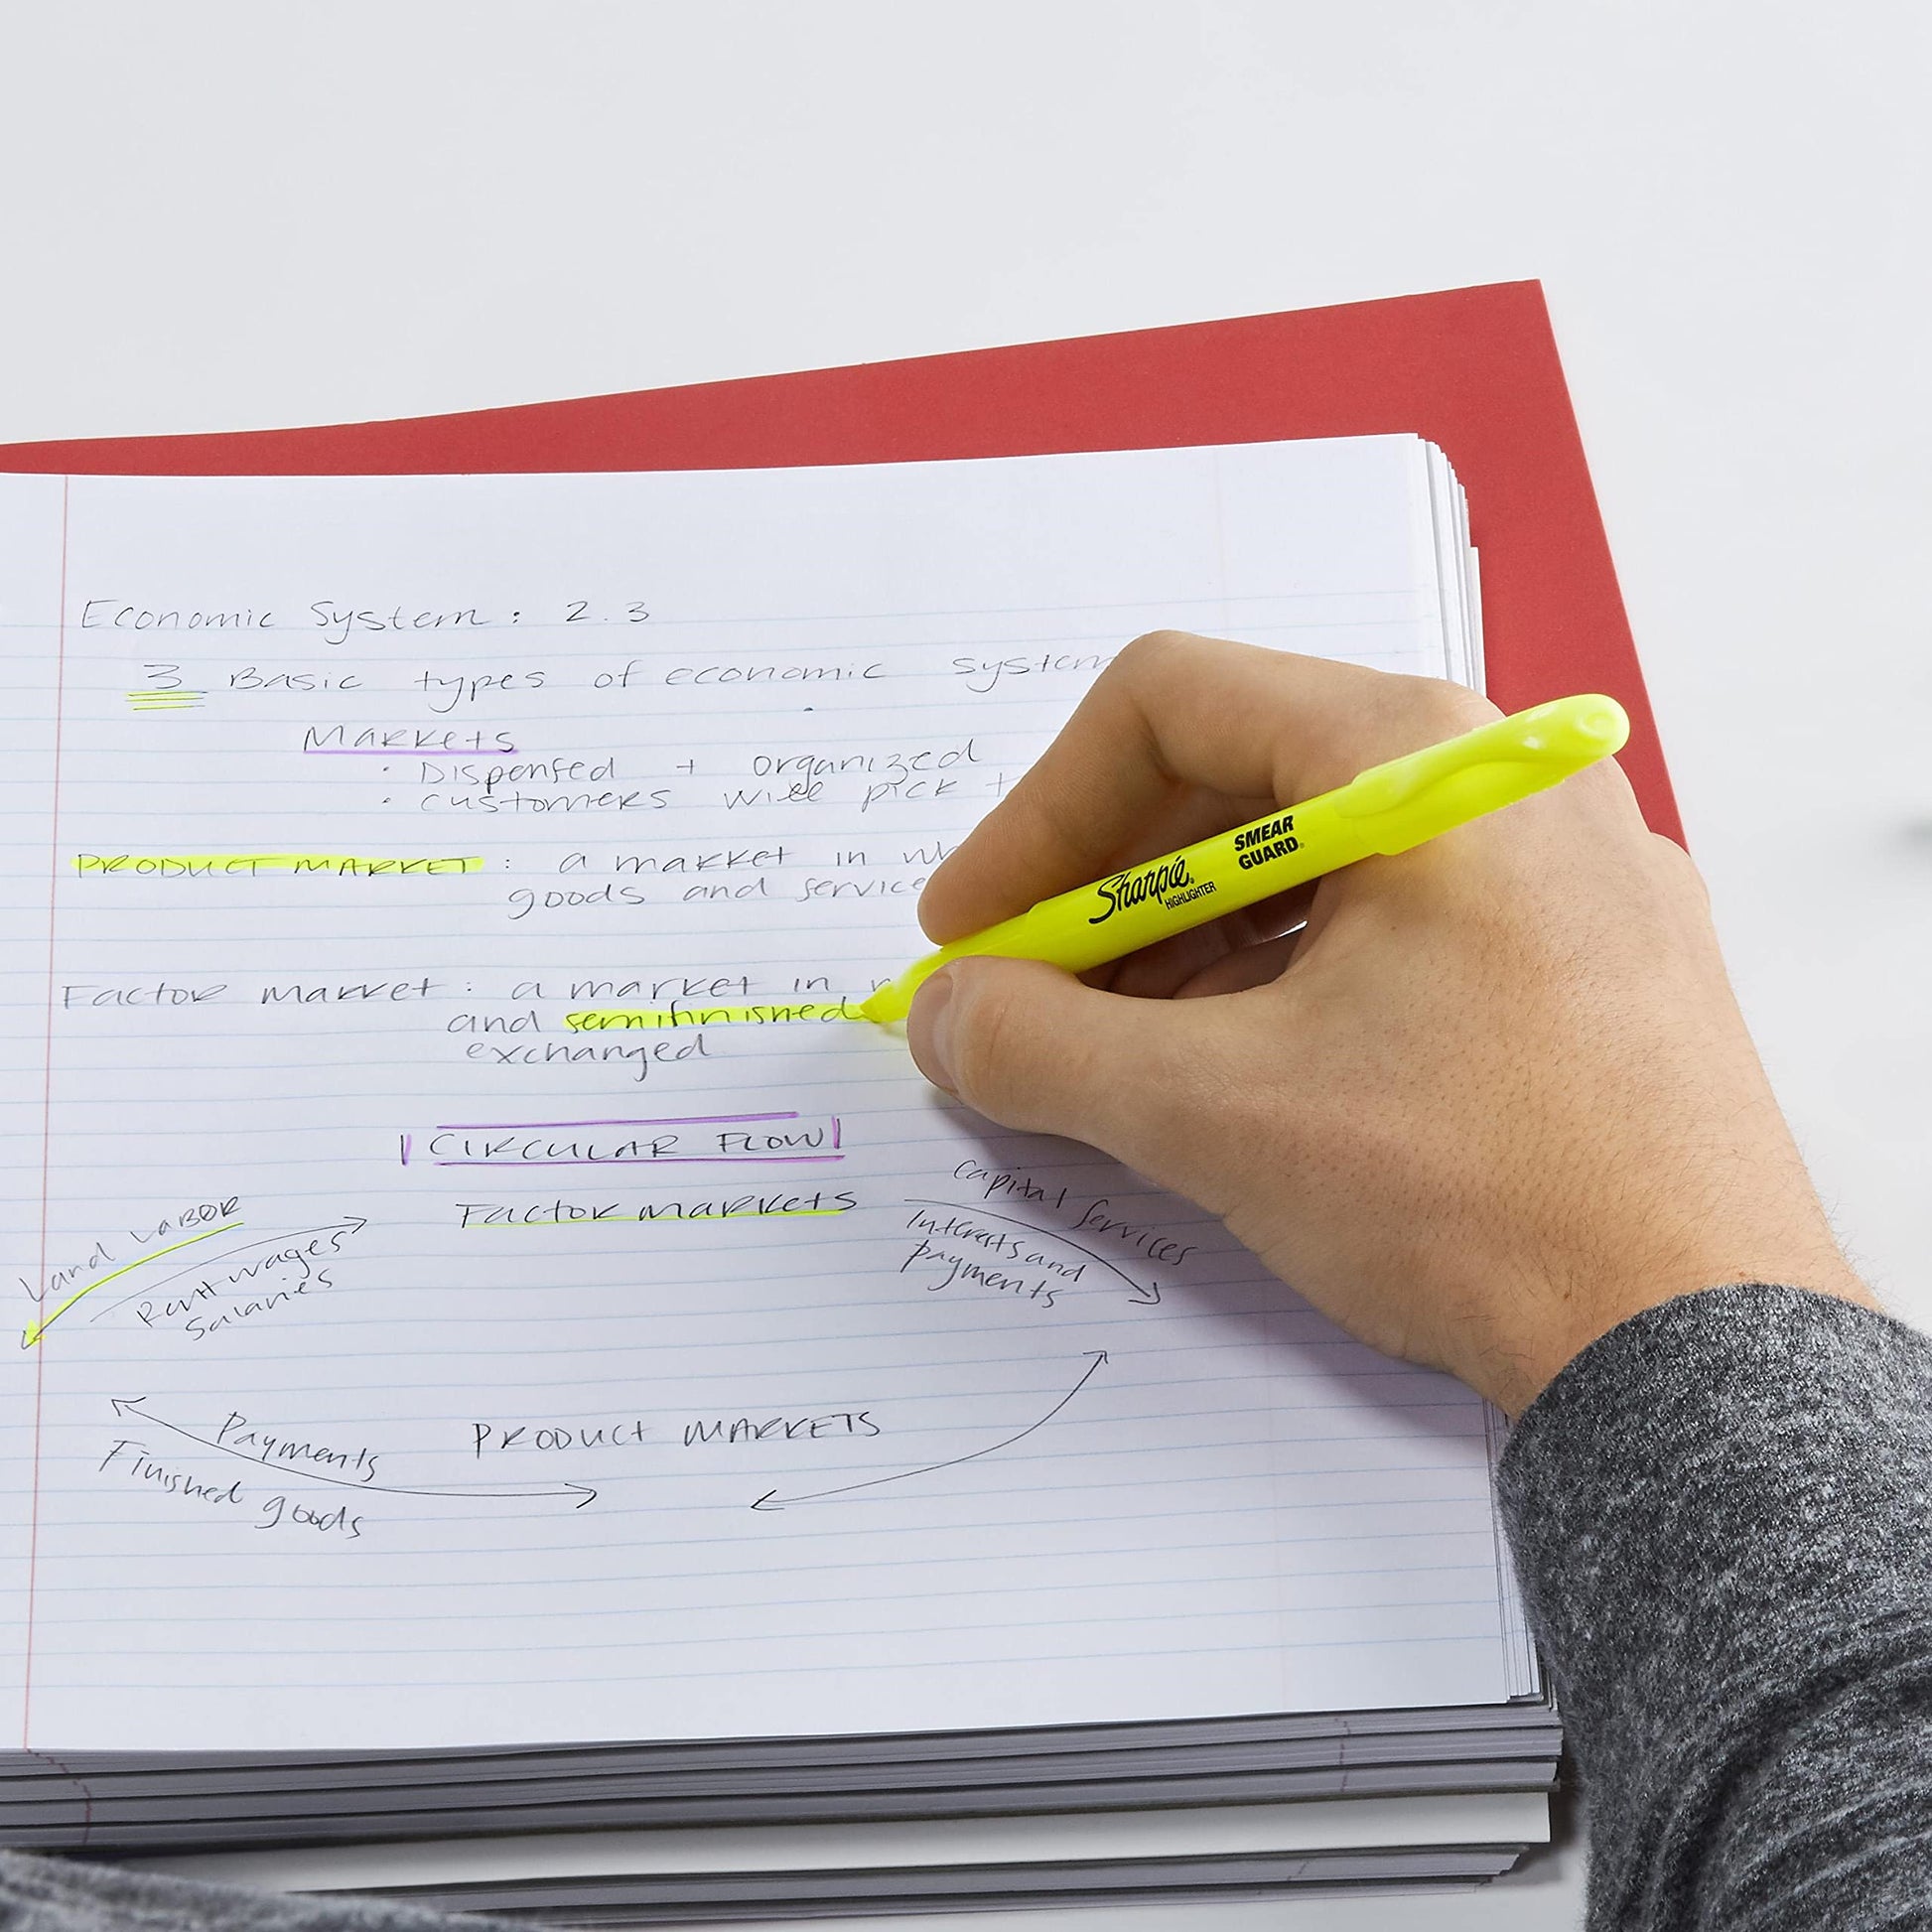 Economic System: 2.3
3 Basic types of economic system
Markets
· Dispensed + organized
· customers will pick
PRODUCT MARKET: a market in wh
goods and service
Factor market: a market in
and semifinished
exchanged
CIRCULAR FLOW
Factor markets
Land Labor
Rent wages
salaries
capital services
Interests and
payments
PRODUCT MARKETS
Payments
Finished goods
Sharpie
HIGHLIGHTER
SMEAR
GUARD